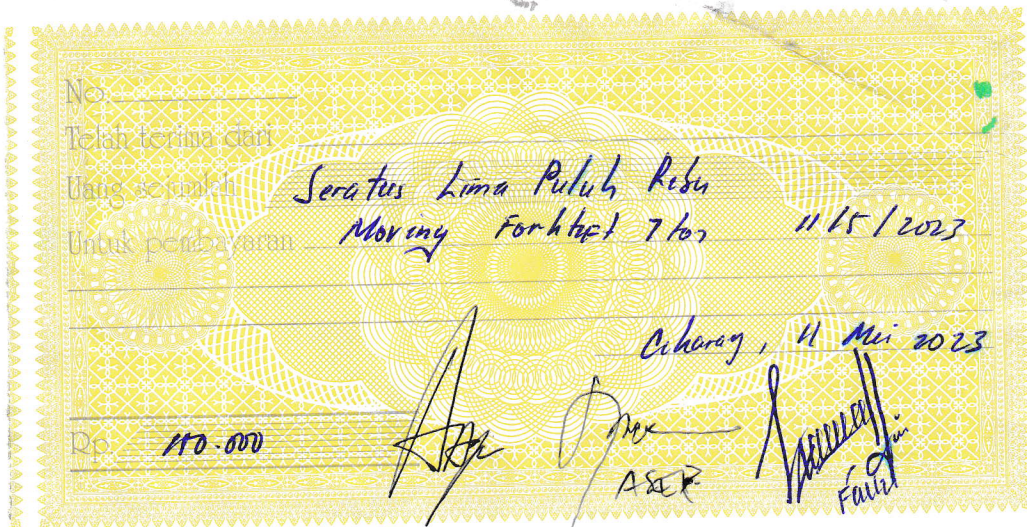 No.
Telah terima dari
Uang sejumlah Seratus Lima Puluh Ribu
Untuk pembayaran Moving Forklift 7 ton 11/5/2023
Cikarang, 11 Mei 2023
Rp. 150.000
ASEP
Fauzi